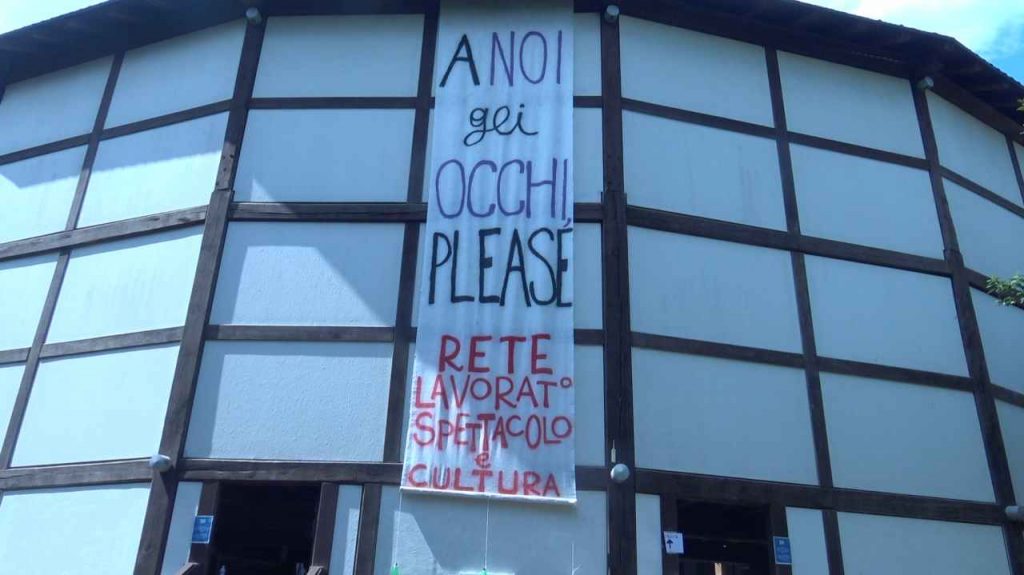 A NOI
gei
OCCHI,
PLEASE
RETE
LAVORATº
SPETTACOLO
e
CULTURA